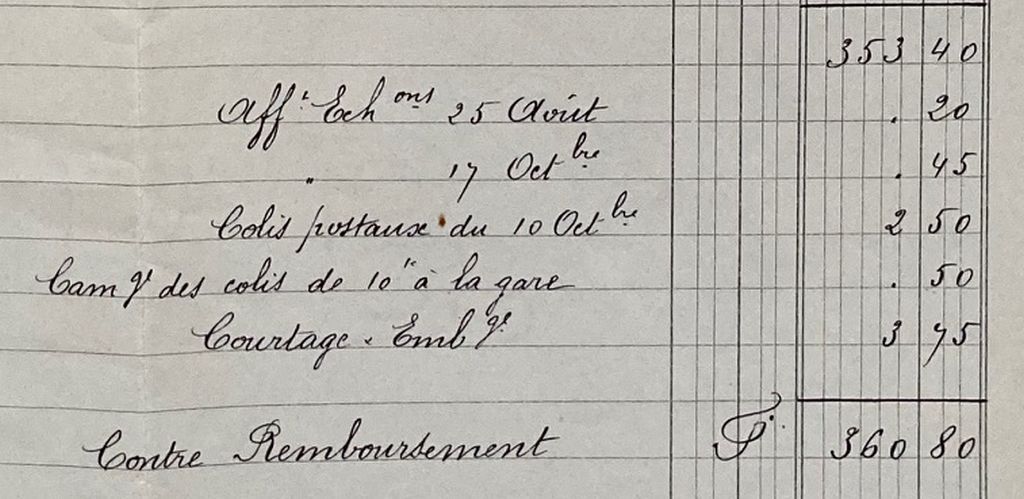 353 40
Afft Echons 25 Août . 20
" 17 Octbre . 45
Colis postaux du 10 Octbre 2 50
Camge des colis de 10" à la gare . 50
Courtage. Embge 3 75
Contre Remboursement F. 360 80